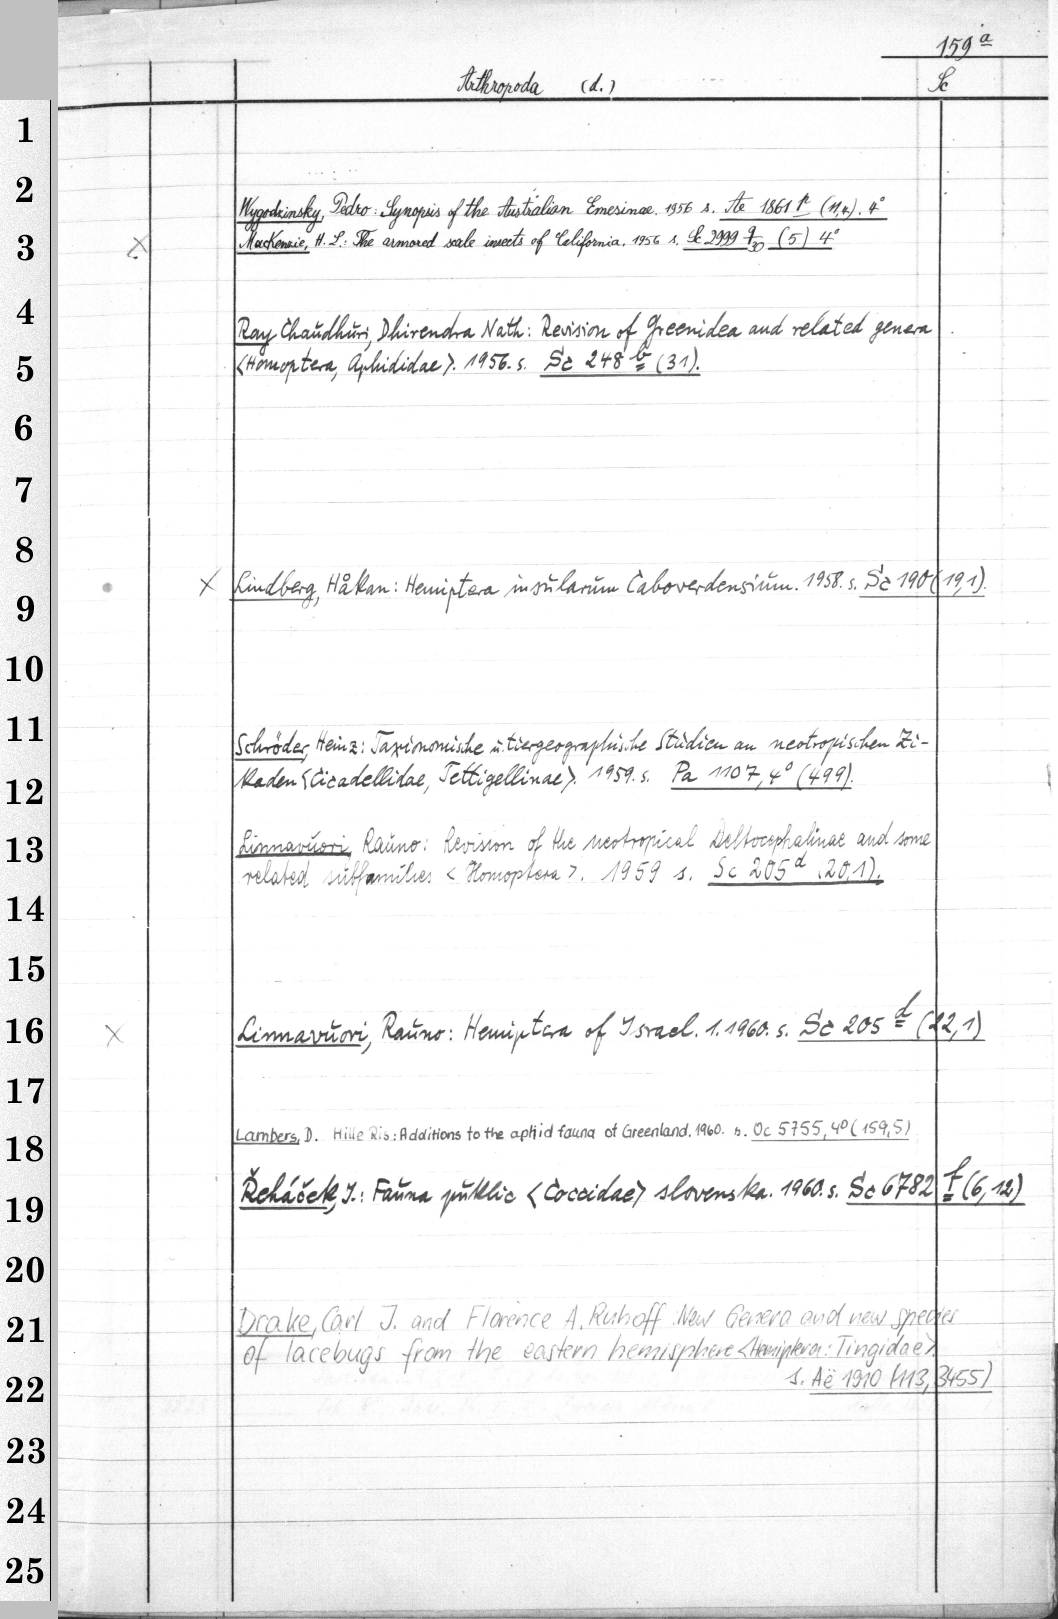 159 a
Arthropoda (d.) Sc
1
2
Wygodzinsky, Pedro: Synopsis of the Australian Emesinae. 1956 s. Ae 1861 k (11,4). 4°
3
MacKenzie, H. L.: The armored scale insects of California. 1956 s. Sc 2999 9/30 (5) 4°
4
Ray Chaudhuri, Dhirendra Nath: Revision of Greenidea and related genera
5
<Homoptera, Aphididae>. 1956. s. Sc 248 b (31).
6
7
8
9
Lindberg, Håkan: Hemiptera insularum Caboverdensium. 1958. s. Sc 190 (19,1).
10
11
Schröder, Heinz: Taxionomische u. tiergeographische Studien an neotropischen Zi-
12
kaden <Cicadellidae, Tettigellinae>. 1959. s. Pa 1107, 4° (499).
13
Linnavuori, Rauno: Revision of the neotropical Deltocephalinae and some
related subfamilies <Homoptera>. 1959 s. Sc 205 d (20,1).
14
15
16
Linnavuori, Rauno: Hemiptera of Israel. 1. 1960. s. Sc 205 d (22,1)
17
18
Lambers, D. Hille Ris: Additions to the aphid fauna of Greenland. 1960. s. Oc 5755, 4° (159,5)
19
Řeháček, J.: Fauna puklic <Coccidae> slovenska. 1960. s. Sc 6782 f (6,12)
20
21
Drake, Carl J. and Florence A. Ruhoff: New Genera and new species
of lacebugs from the eastern hemisphere <Hemiptera: Tingidae>
22
s. Aë 1910 (113, 3455)
23
24
25